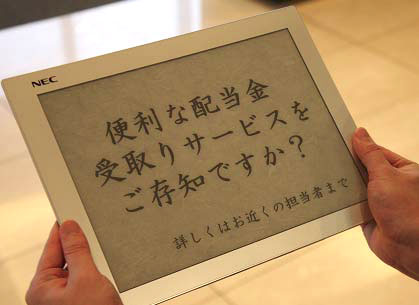 NEC
便利な配当金
受取りサービスを
ご存知ですか？
詳しくはお近くの担当者まで